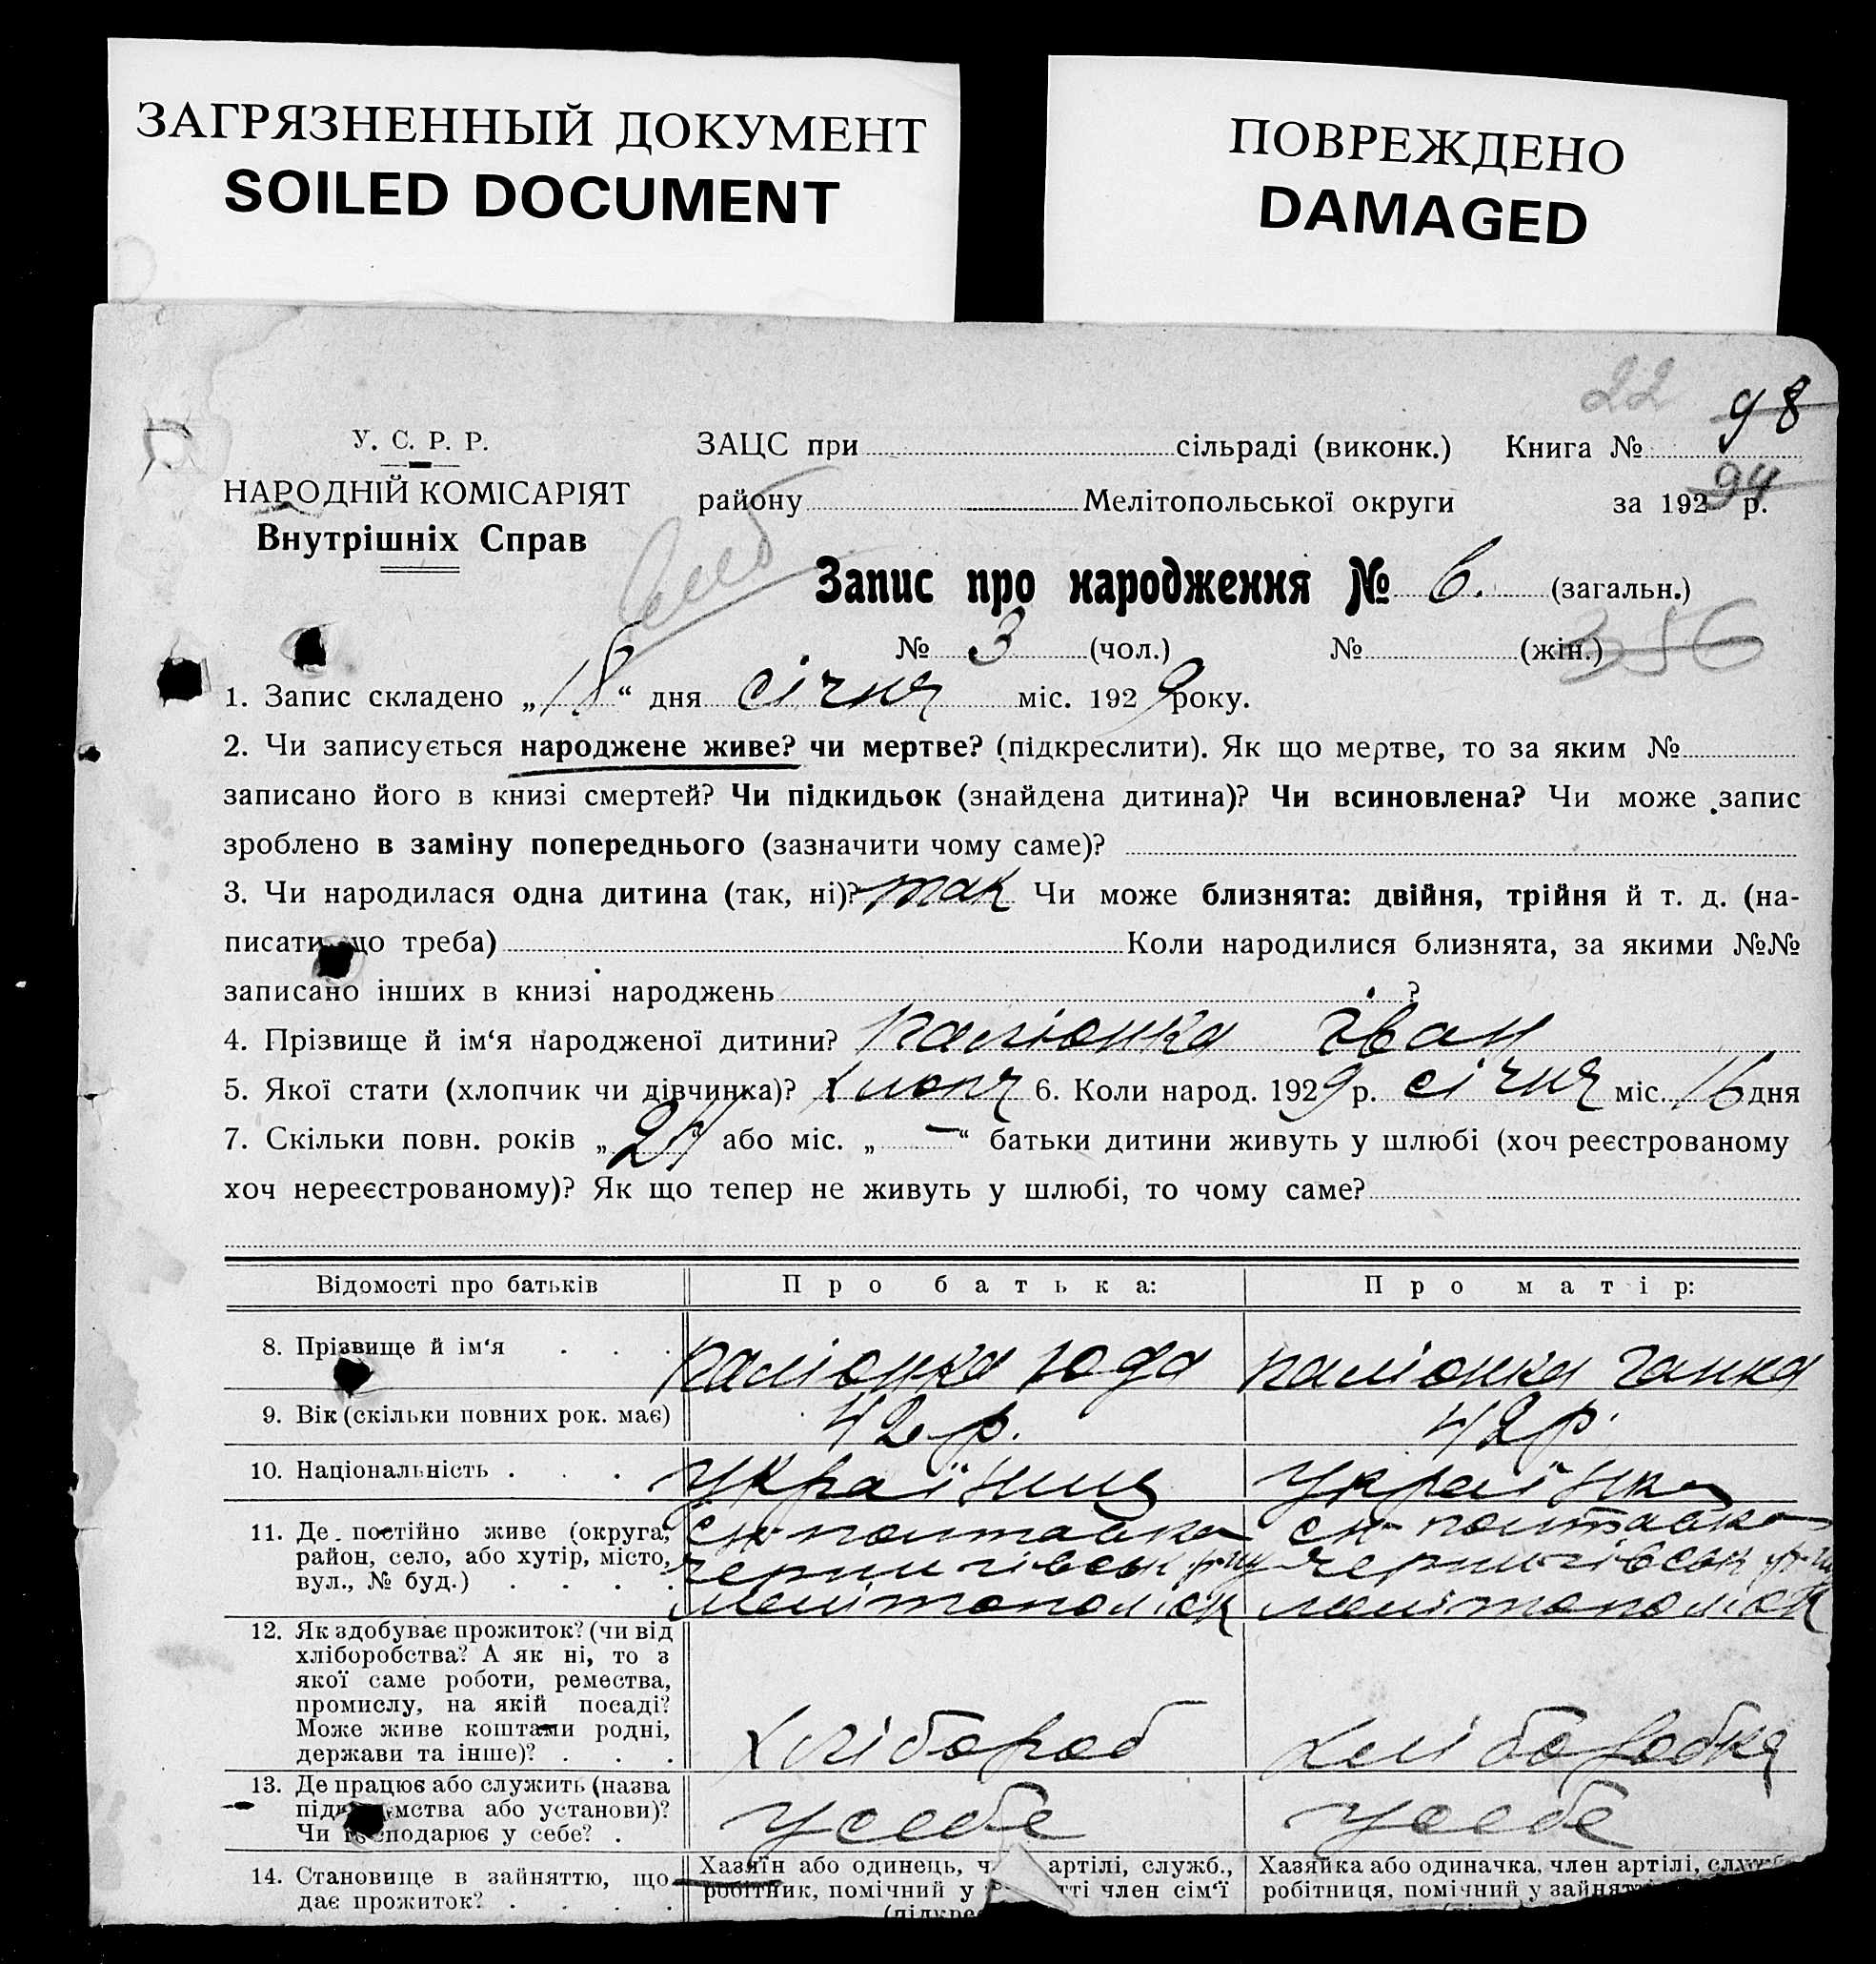 ЗАГРЯЗНЕННЫЙ ДОКУМЕНТ
SOILED DOCUMENT
ПОВРЕЖДЕНО
DAMAGED
22 98
У. С. Р. Р.
НАРОДНІЙ КОМІСАРІЯТ
Внутрішніх Справ
ЗАЦС при сільраді (виконк.) Книга №
району Мелітопольської округи за 192 94 р.
Запис про народження № 6. (загальн.)
№ 3 (чол.) № (жін.) 356
1. Запис складено „18“ дня січня міс. 1929 року.
2. Чи записується народжене живе? чи мертве? (підкреслити). Як що мертве, то за яким №
записано його в книзі смертей? Чи підкидьок (знайдена дитина)? Чи всиновлена? Чи може запис
зроблено в заміну попереднього (зазначити чому саме)?
3. Чи народилася одна дитина (так, ні)? так Чи може близнята: двійня, трійня й т. д. (на-
писати що треба) Коли народилися близнята, за якими №№
записано інших в книзі народжень ?
4. Прізвище й ім‘я народженої дитини? Паліонка Іван
5. Якої стати (хлопчик чи дівчинка)? хлопч 6. Коли народ. 1929 р. січня міс. 16 дня
7. Скільки повн. років „24“ або міс. „—“ батьки дитини живуть у шлюбі (хоч реєстрованому
хоч нереєстрованому)? Як що тепер не живуть у шлюбі, то чому саме?
Відомості про батьків Про батька: Про матір:
8. Прізвище й ім‘я . . . Паліонка Юда Паліонка Ганна
9. Вік (скільки повних рок. має) 42 р. 42 р.
10. Національність . . . Українець Українка
11. Де постійно живе (округа,
район, село, або хутір, місто,
вул., № буд.) . . . .
с. Полтавка с. Полтавка
Чернигівськ р-ну Чернигівськ р-ну
Мелітопол. ок Мелітопол. ок
12. Як здобуває прожиток? (чи від
хліборобства? А як ні, то з
якої саме роботи, ремества,
промислу, на якій посаді?
Може живе коштами родні,
держави та інше)? . . .
Хлібороб Хліборобка
13. Де працює або служить (назва
підприємства або установи)?
Чи господарює у себе? .
У себе У себе
14. Становище в зайняттю, що
дає прожиток? . . . .
Хазяїн або одинець, артілі, служб.,
робітник, помічний у член сім‘ї
Хазяйка або одиначка, член артілі,
робітниця, помічний у